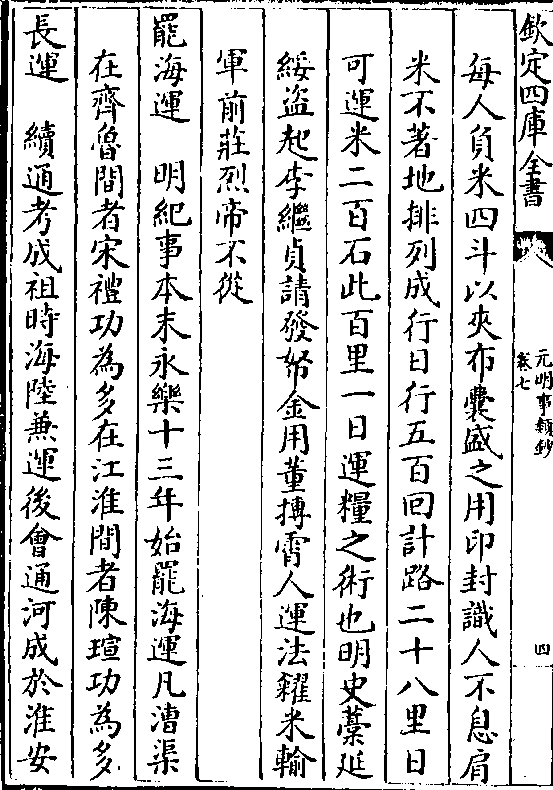 欽定四庫全書
元明事類鈔
卷七
四
每人負米四斗以夾布囊盛之用印封識人不息肩
米不著地排列成行日行五百回計路二十八里日
可運米二百石此百里一日運糧之術也明史藁延
綏盜起李繼貞請發帑金用董搏霄人運法糴米輸
軍前莊烈帝不從
罷海運　明紀事本末永樂十三年始罷海運凡漕渠
在齊魯間者宋禮功為多在江淮間者陳瑄功為多
長運　續通考成祖時海陸兼運後會通河成於淮安